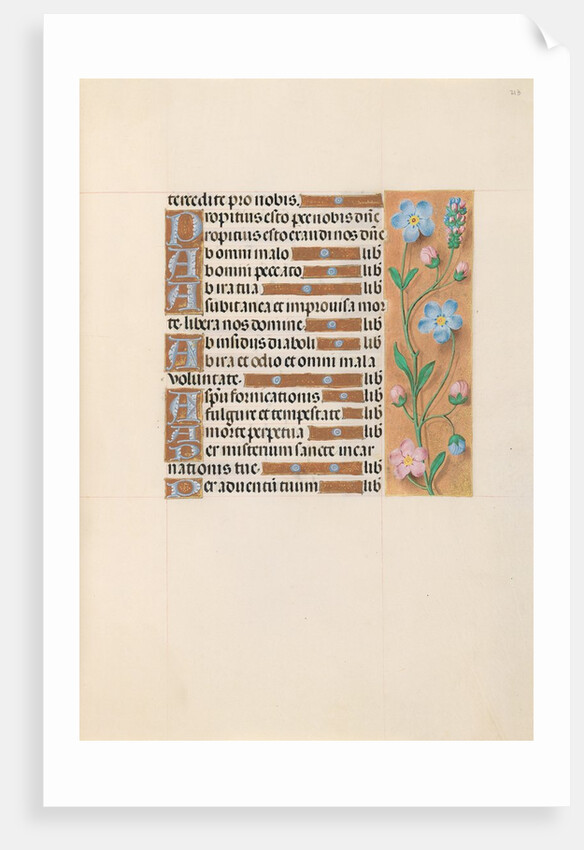 218
tercedite pro nobis.
Propitius esto parce nobis dñe
Propitius esto exaudi nos dñe
Ab omni malo lib̃
Ab omni peccato lib̃
Ab ira tua lib̃
A subitanea et improuisa mor
te. libera nos domine. lib̃
Ab insidiis diaboli lib̃
Ab ira et odio et omni mala
voluntate. lib̃
A spũ fornicationis lib̃
A fulgure et tempestate lib̃
A morte perpetua lib̃
Per misterium sancte incar
nationis tue. lib̃
Per aduentũ tuum lib̃